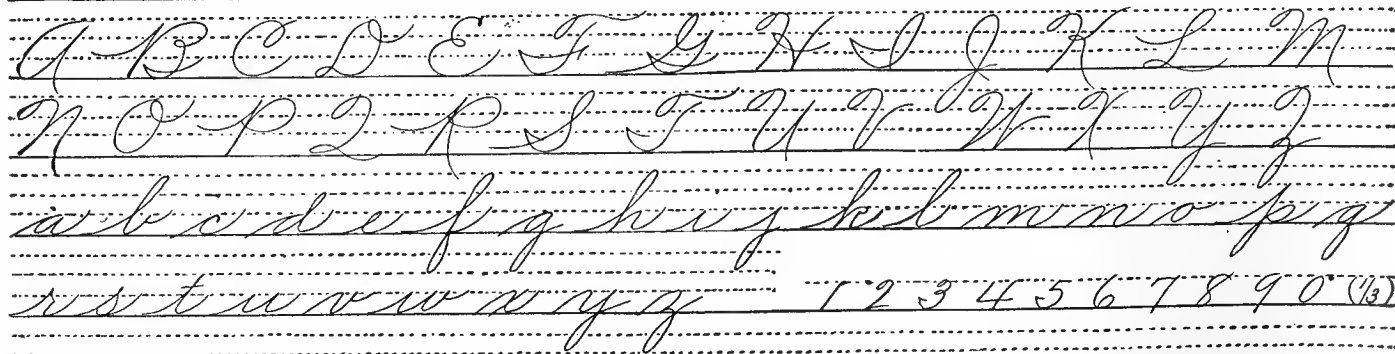 A B C D E F G H I J K L M
N O P Q R S T U V W X Y Z
a b c d e f g h i j k l m n o p q
r s t u v w x y z 1 2 3 4 5 6 7 8 9 0 (1/3)